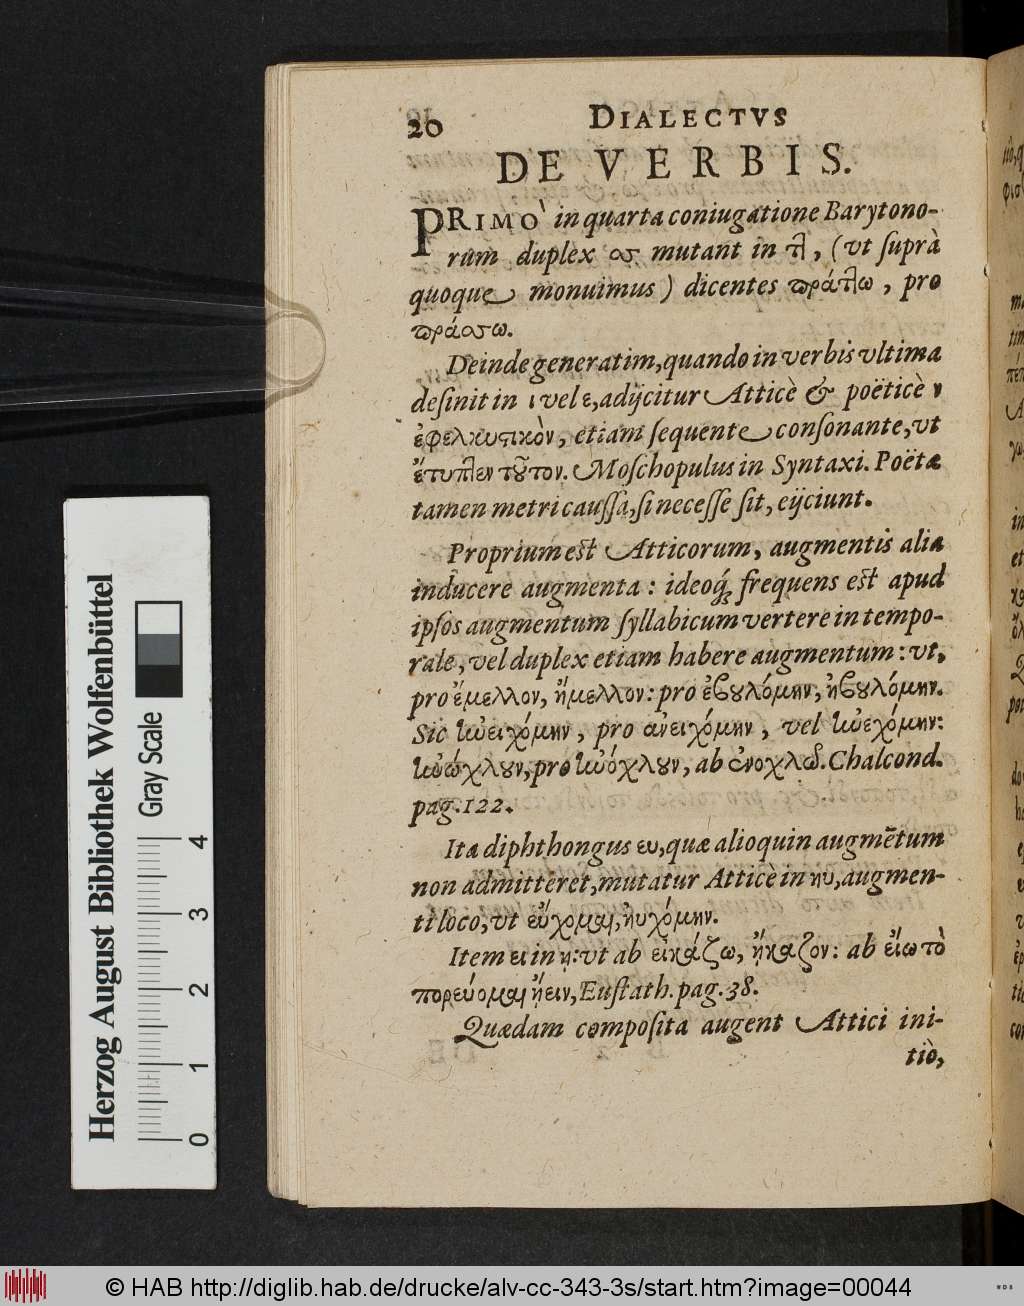 20 DIALECTVS
DE VERBIS.
PRIMÒ in quarta coniugatione Barytono-
rum duplex σσ mutant in ττ, (vt ſuprà
quoque monuimus) dicentes πράττω, pro
πράσσω.
Deinde generatim, quando in verbis vltima
deſinit in ι vel ε, adijcitur Atticè & poëticè ν
ἐφελκυστικὸν, etiam ſequente conſonante, vt
ἔτυπτεν τοῦτον. Moſchopulus in Syntaxi. Poëtæ
tamen metri cauſſa, ſi neceſſe ſit, eijciunt.
Proprium est Atticorum, augmentis alia
inducere augmenta: ideoq́; frequens est apud
ipſos augmentum ſyllabicum vertere in tempo-
rale, vel duplex etiam habere augmentum: vt,
pro ἔμελλον, ἤμελλον: pro ἐβουλόμην, ἠβουλόμην.
Sic ἠνειχόμην, pro ἀνειχόμην, vel ἠνεχόμην:
ἠνώχλουν, pro ἠνόχλουν, ab ἐνοχλῶ. Chalcond.
pag. 122.
Ita diphthongus ευ, quæ alioquin augmẽtum
non admitteret, mutatur Atticè in ηυ, augmen-
ti loco, vt εὔχομαι, ηὐχόμην.
Item ει in ῃ: vt ab εἰκάζω, ᾔκαζον: ab εἴω τὸ
πορεύομαι ᾔειν, Euſtath. pag. 38.
Quædam compoſita augent Attici ini-
tiò,
Herzog August Bibliothek Wolfenbüttel
Gray Scale
0 1 2 3 4
© HAB http://diglib.hab.de/drucke/alv-cc-343-3s/start.htm?image=00044